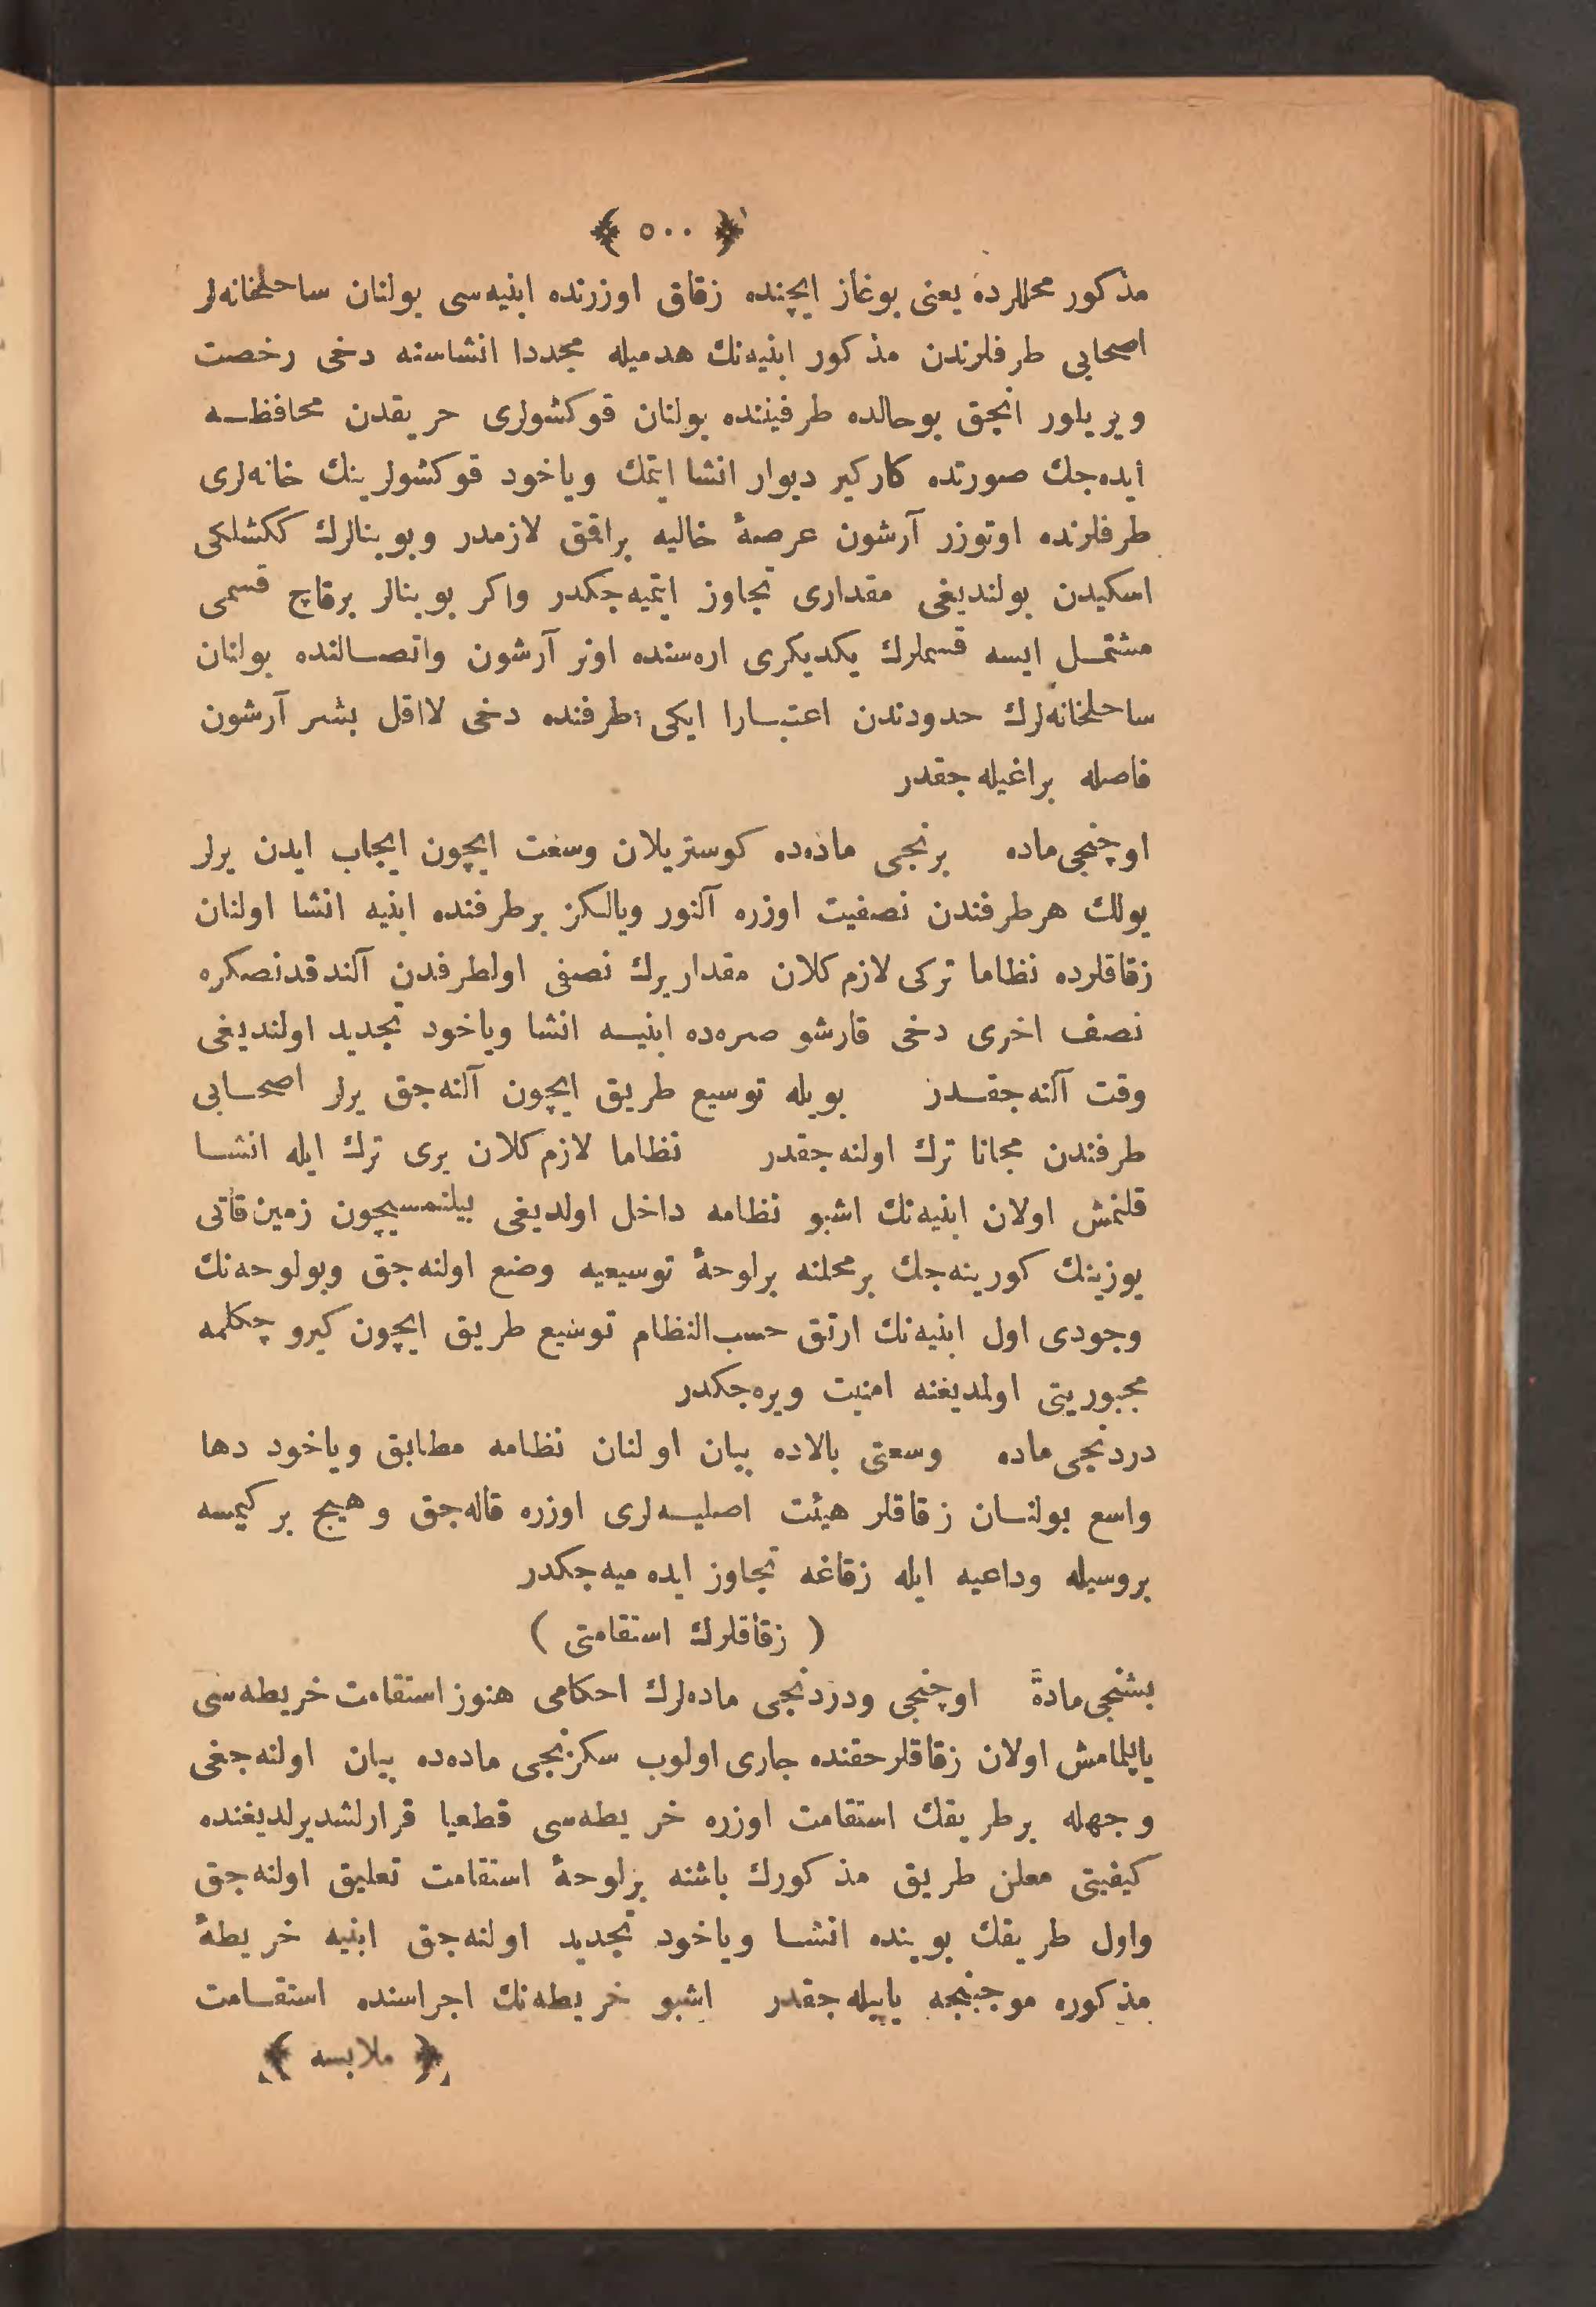 ﴿ ٥٠٠ ﴾
مذكور محللرده يعنى بوغاز ايچنده زقاق اوزرنده ابنيه‌سى بولنان ساحلخانه‌لر
اصحابى طرفلرندن مذكور ابنيه‌نك هدميله مجددا انشاسنه دخى رخصت
ويريلور انجق بوحالده طرفيننده بولنان قوكشولرى حريقدن محافظه
ايده‌جك صورتده كاركير ديوار انشا ايتمك وياخود قوكشولرينك خانه‌لرى
طرفلرنده اوتوزر آرشون عرصهٔ خاليه براقق لازمدر وبوبنالرك ككشلكى
اسكيدن بولنديغى مقدارى تجاوز ايتميه‌جكدر واكر بوبنالر برقاچ قسمى
مشتمل ايسه قسملرك يكديكرى اره‌سنده اونر آرشون واتصالنده بولنان
ساحلخانه‌لرك حدودندن اعتبارا ايكى طرفنده دخى لااقل بشر آرشون
فاصله براغيله‌جقدر
اوچنجى‌ماده برنجى ماده‌ده كوستريلان وسعت ايچون ايجاب ايدن يرلر
يولك هرطرفندن نصفيت اوزره آلنور ويالكز برطرفنده ابنيه انشا اولنان
زقاقلرده نظاما تركى لازم‌كلان مقدار يرك نصفى اولطرفدن آلندقدنصكره
نصف اخرى دخى قارشو صره‌ده ابنيه انشا وياخود تجديد اولنديغى
وقت آلنه‌جقدر بويله توسيع طريق ايچون آلنه‌جق يرلر اصحابى
طرفندن مجانا ترك اولنه‌جقدر نظاما لازم‌كلان يرى ترك ايله انشا
قلنمش اولان ابنيه‌نك اشبو نظامه داخل اولديغى بيلنمسيچون زمين‌قاتى
يوزينك كورينه‌جك برمحلنه برلوحهٔ توسيعيه وضع اولنه‌جق وبولوحه‌نك
وجودى اول ابنيه‌نك ارتق حسب‌النظام توسيع طريق ايچون كيرو چكلمه
مجبوريتى اولمديغنه امنيت ويره‌جكدر
دردنجى‌ماده وسعتى بالاده بيان اولنان نظامه مطابق وياخود دها
واسع بولنان زقاقلر هيئت اصليه‌لرى اوزره قاله‌جق وهيچ بر كيمسه
بروسيله وداعيه ايله زقاغه تجاوز ايده‌ميه‌جكدر
( زقاقلرك استقامتى )
بشنجى‌ماده اوچنجى ودردنجى ماده‌لرك احكامى هنوز استقامت خريطه‌سى
ياپلمامش اولان زقاقلرحقنده جارى اولوب سكزنجى ماده‌ده بيان اولنه‌جغى
وجهله برطريقك استقامت اوزره خريطه‌سى قطعيا قرارلشديرلديغنده
كيفيتى معلن طريق مذكورك باشنه برلوحهٔ استقامت تعليق اولنه‌جق
واول طريقك بوينده انشا وياخود تجديد اولنه‌جق ابنيه خريطهٔ
مذكوره موجبنجه ياپيله‌جقدر اشبو خريطه‌نك اجراسنده استقامت
﴿ ملابسه ﴾